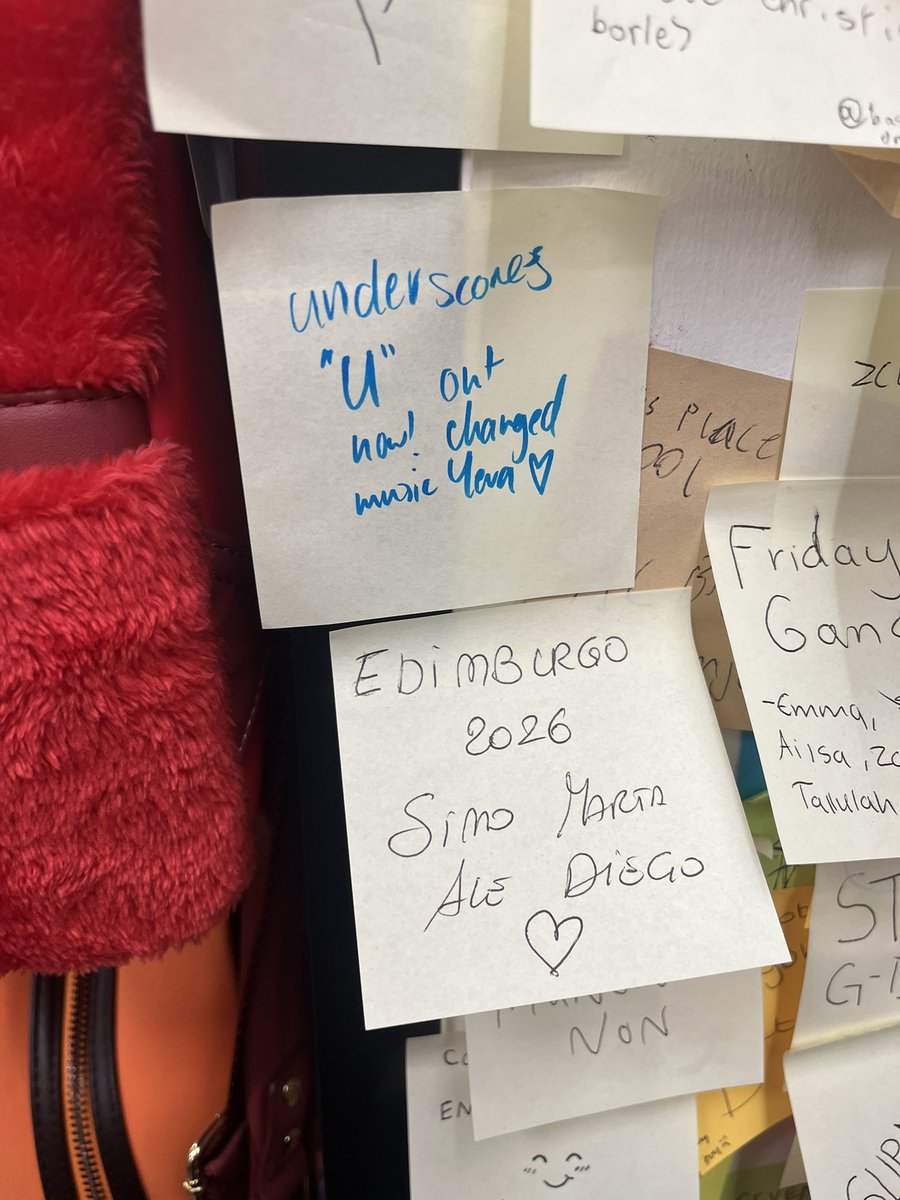 borles
@bas
underscores
"U" out
now! changed
music Yeva ♡
PLACE
Friday
Gang
-Emma,
Ailsa, Zo
Tallulah
EDIMBURGO
2026
SIMO MARTA
ALE DIEGO
♡
NON
EN
ST
G-